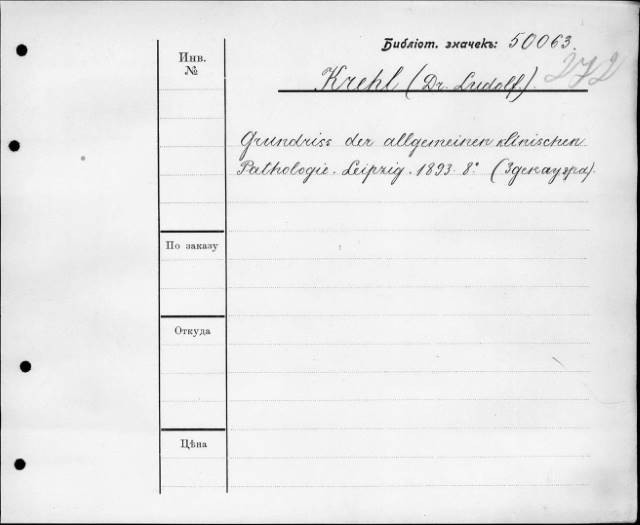 Библіот. значекъ: 50063.
272
Инв.
№
Krehl (Dr. Ludolf).
Grundriss der allgemeinen klinischen
Pathologie. Leipzig. 1893. 8° (3 декауэра).
По заказу
Откуда
Цѣна